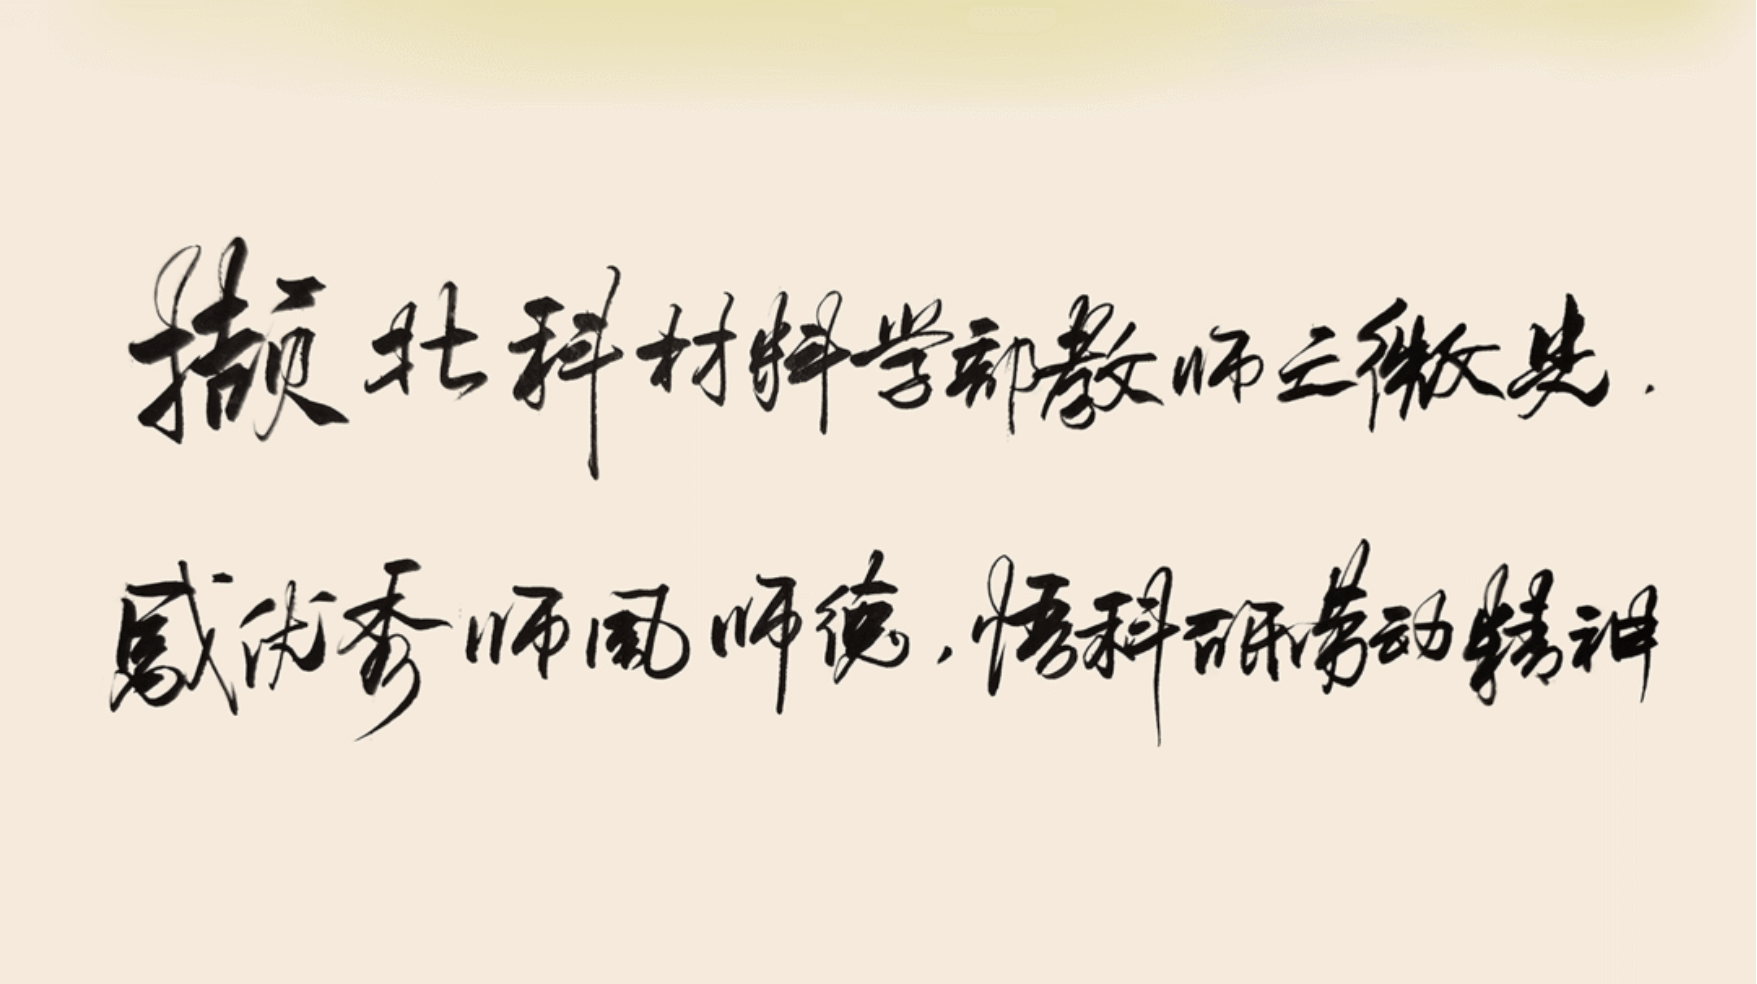 撷北科材料学部教师之微光.
感优秀师风师德,悟科研劳动精神